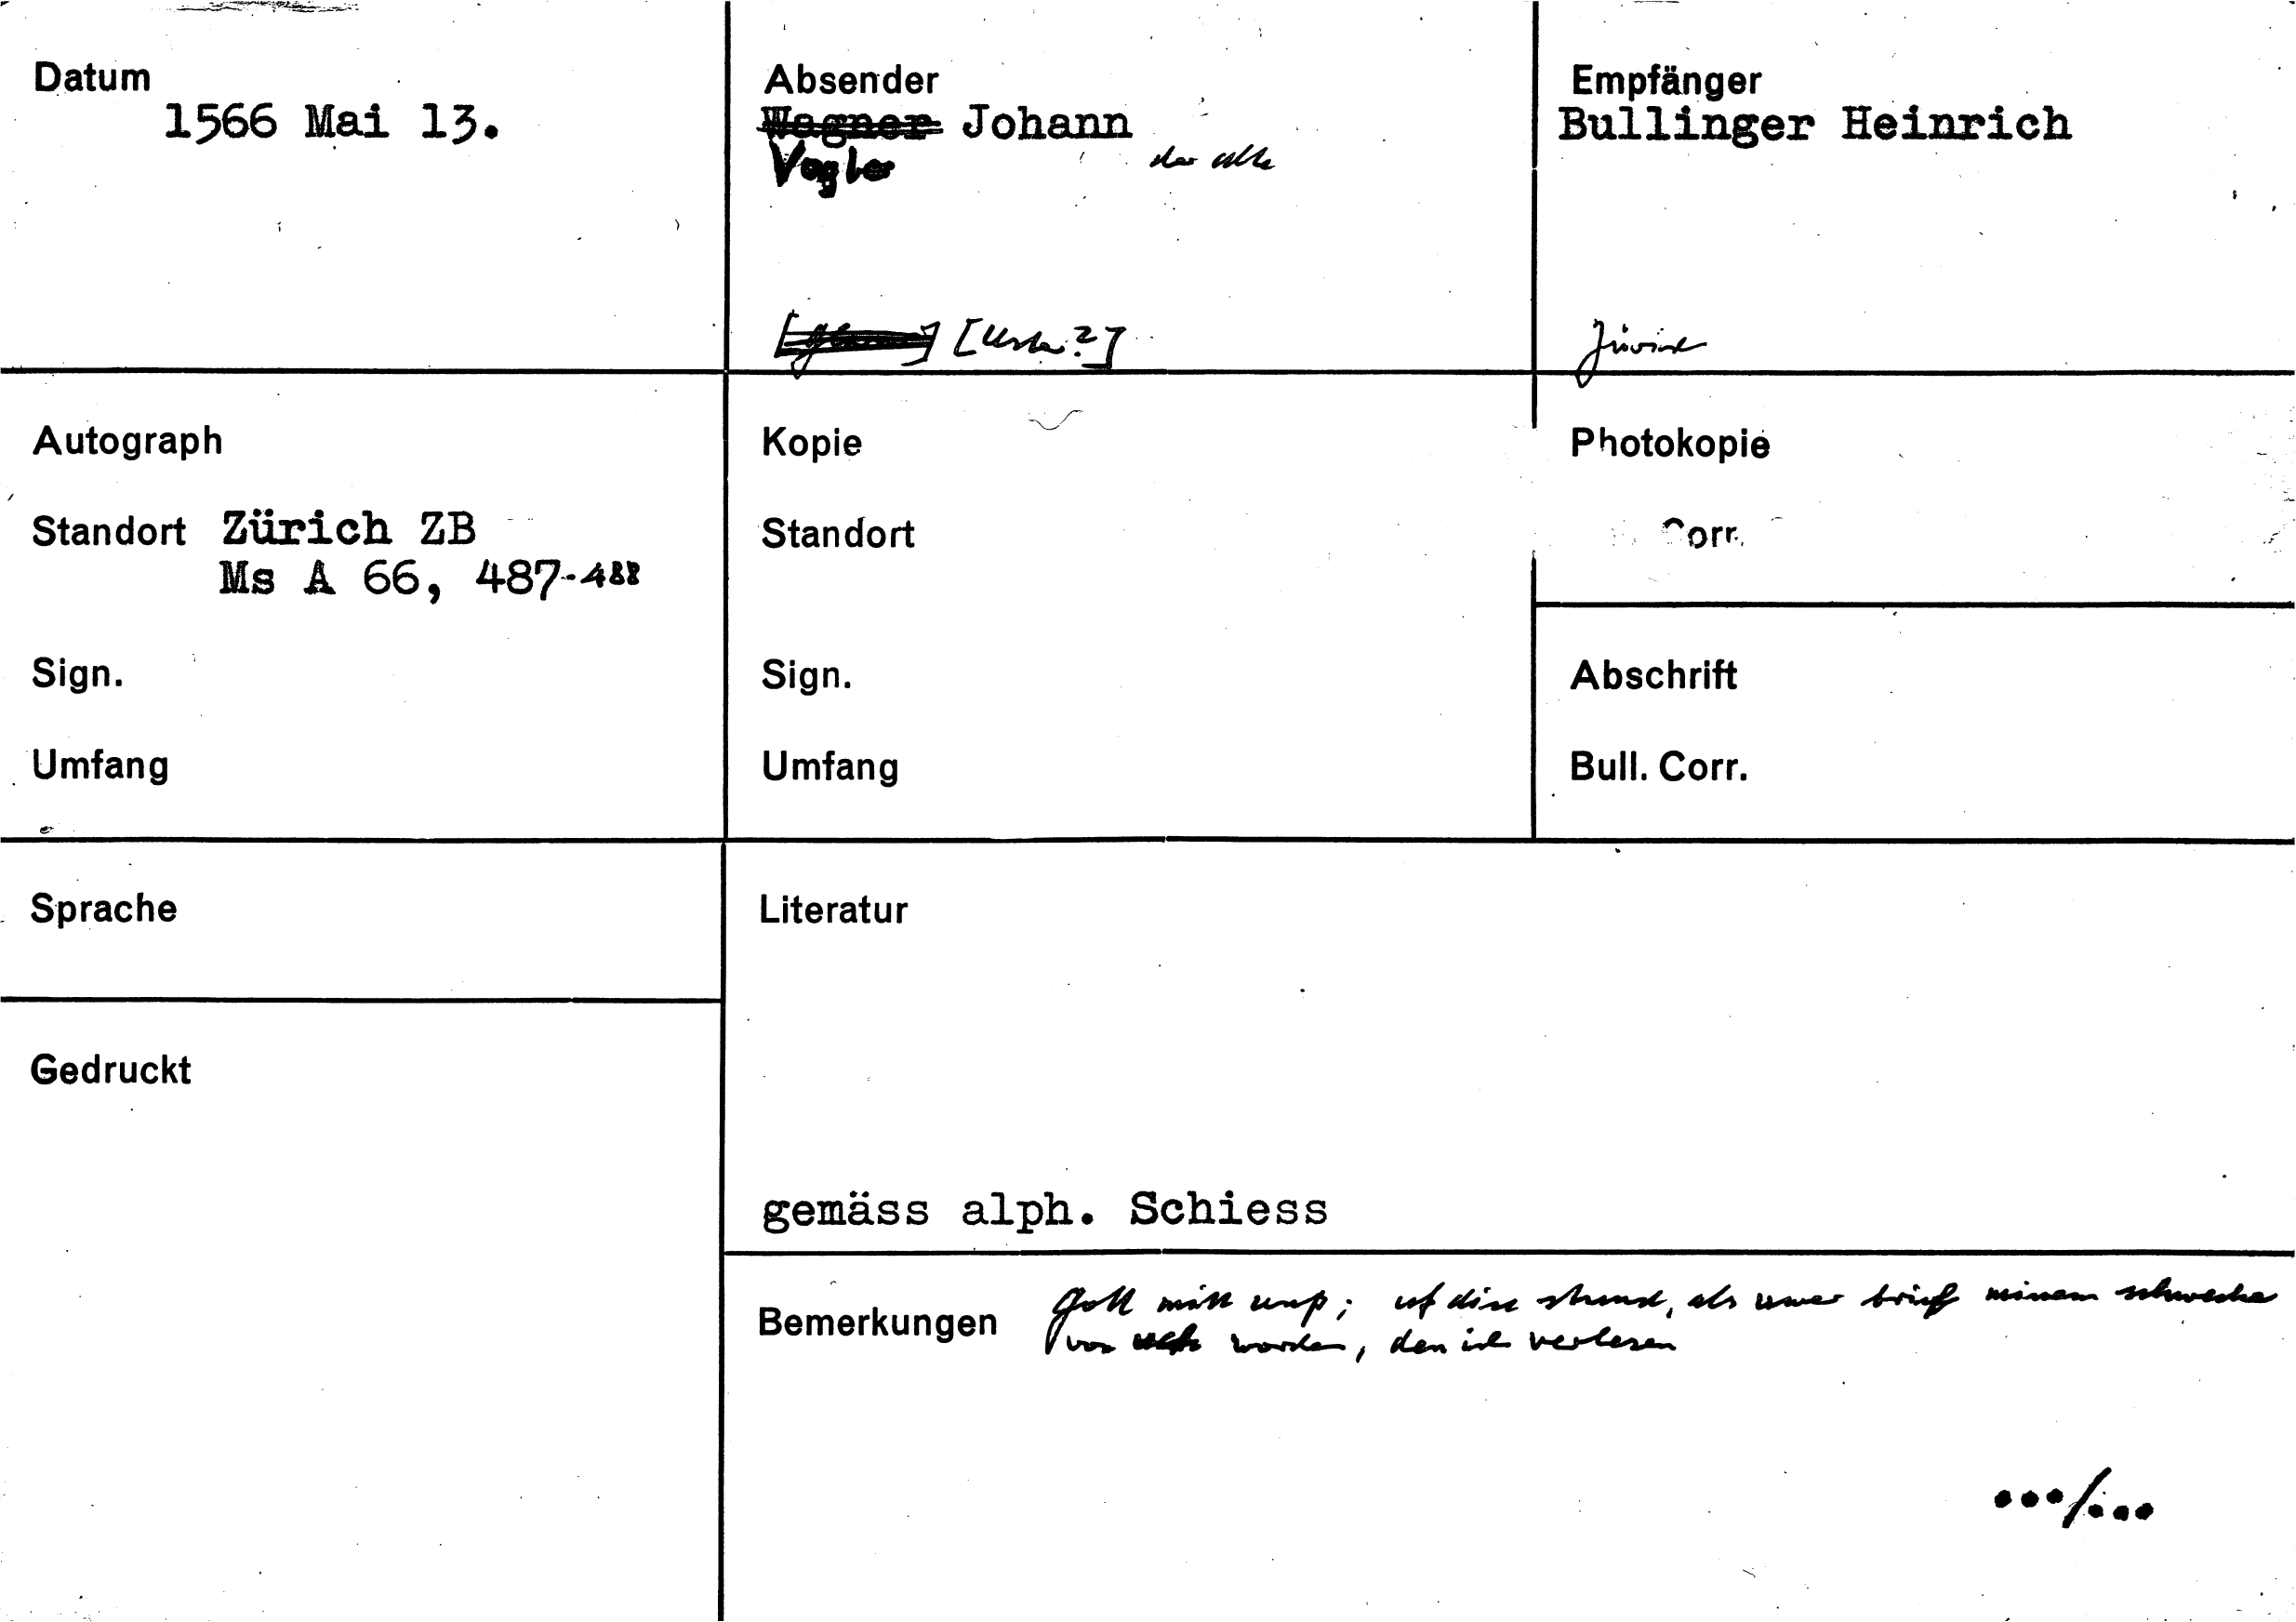 Datum
1566 Mai 13.
Absender
Wagner Johann
Vogler
der alte
[Uster?]
Empfänger
Bullinger Heinrich
Zürich
Autograph
Standort Zürich ZB
Ms A 66, 487-488
Sign.
Umfang
Kopie
Standort
Sign.
Umfang
Photokopie
Corr.
Abschrift
Bull. Corr.
Sprache
Gedruckt
Literatur
gemäss alph. Schiess
Bemerkungen
Gott mitt unß; uf dise stund, als uwer brief minem
worden, den ich verlesen
.../...